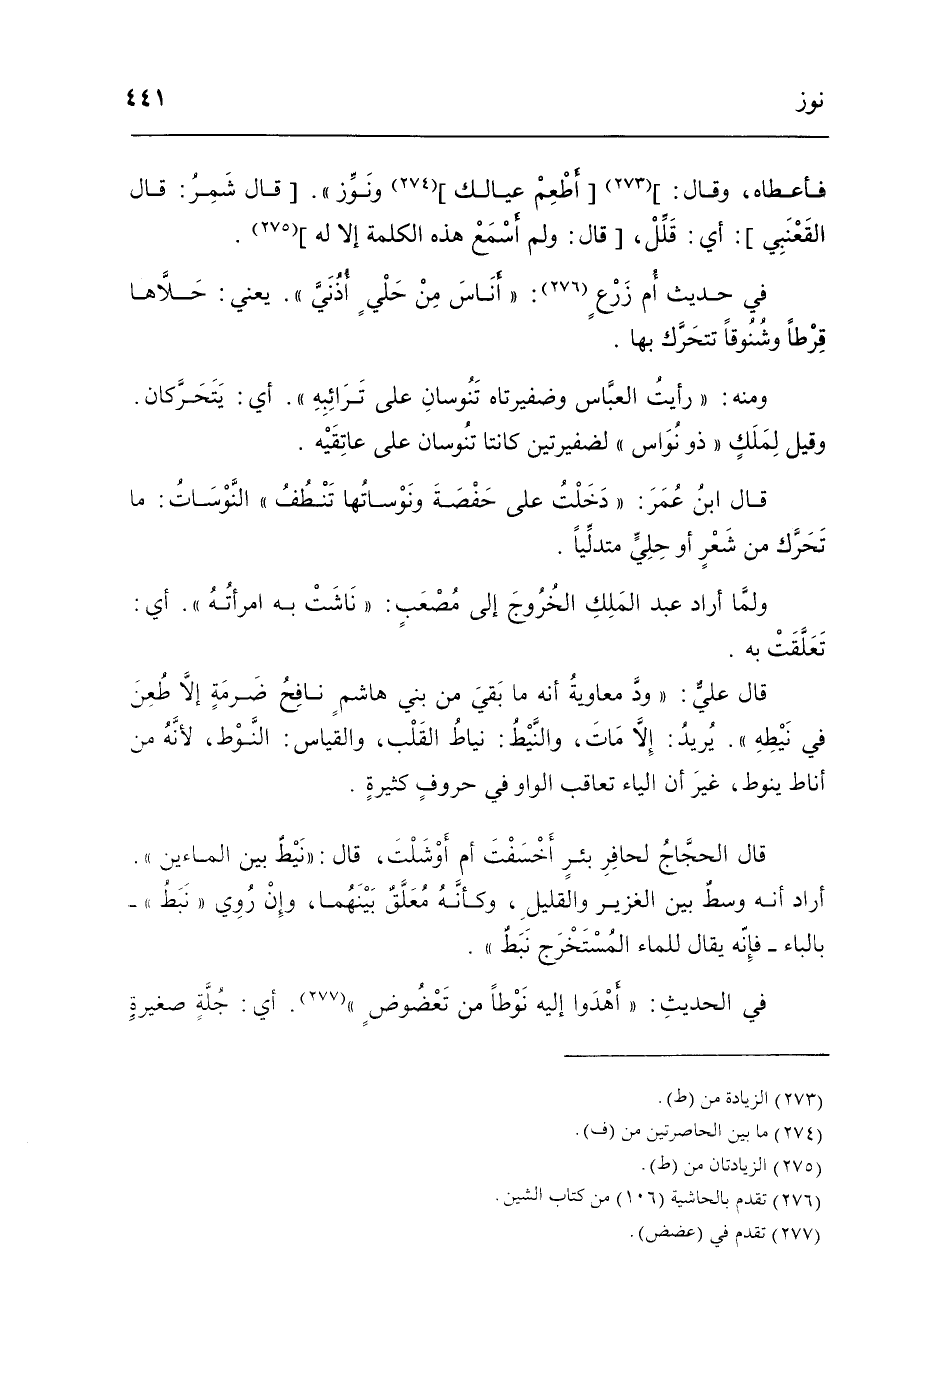 نوز ٤٤١
فأعطاه، وقال: ](٢٧٣) [ أَطْعِمْ عيالك ](٢٧٤) ونَوِّز ». [ قال شَمِرُ: قال
القَعْنَبِي ]: أي: قَلِّلْ، [ قال: ولم أَسْمَعْ هذه الكلمة إلا له ](٢٧٥) .
في حديث أُم زَرْعٍ(٢٧٦): « أَنَاسَ مِنْ حَلْيٍ أُذُنَيَّ ». يعني: حَلَّاها
قِرْطاً وشُنُوقاً تتحَرَّك بها .
ومنه: « رأيتُ العبَّاس وضفيرتاه تَنُوسانِ على تَرَائِبِهِ ». أي: يَتَحَرَّكان.
وقيل لِمَلَكٍ « ذو نُوَاس » لضفيرتين كانتا تَنُوسان على عاتِقَيْه .
قال ابنُ عُمَرَ: « دَخَلْتُ على حَفْصَةَ ونَوْساتُها تَنْطُفُ » النَّوْسَاتُ: ما
تَحَرَّك من شَعْرٍ أو حِلِيٍّ متدلِّياً .
ولمَّا أراد عبد المَلِكِ الخُرُوجَ إلى مُصْعَبٍ: « نَاشَتْ به امرأتُهُ ». أي:
تَعَلَّقَتْ به .
قال عليٌّ: « ودَّ معاويةُ أنه ما بَقيَ من بني هاشمٍ نافِخُ ضَرمَةٍ إلاَّ طُعِنَ
في نَيْطِهِ ». يُريدُ: إلاَّ مَاتَ، والنَّيْطُ: نياطُ القَلْب، والقياس: النَّوْط، لأنَّهُ من
أناط ينوط، غيرَ أن الياء تعاقب الواو في حروفٍ كثيرةٍ .
قال الحجَّاجُ لحافِرِ بئرٍ أَخْسَفْتَ أم أَوْشَلْتَ، قال: «نَيْطٌ بين الماءين ».
أراد أنه وسطٌ بين الغزير والقليلِ، وكأنَّهُ مُعَلَّقٌ بَيْنَهُما، وإنْ رُوِي « نَبَطُ » -
بالباء - فإِنّه يقال للماء المُسْتَخْرَجِ نَبَطٌ » .
في الحديثِ: « أَهْدَوا إليه نَوْطاً من تَعْضُوضٍ »(٢٧٧). أي: جُلَّةٍ صغيرةٍ
(٢٧٣) الزيادة من (ط).
(٢٧٤) ما بين الحاصرتين من (ف).
(٢٧٥) الزيادتان من (ط).
(٢٧٦) تقدم بالحاشية (١٠٦) من كتاب الشين.
(٢٧٧) تقدم في (عضض).